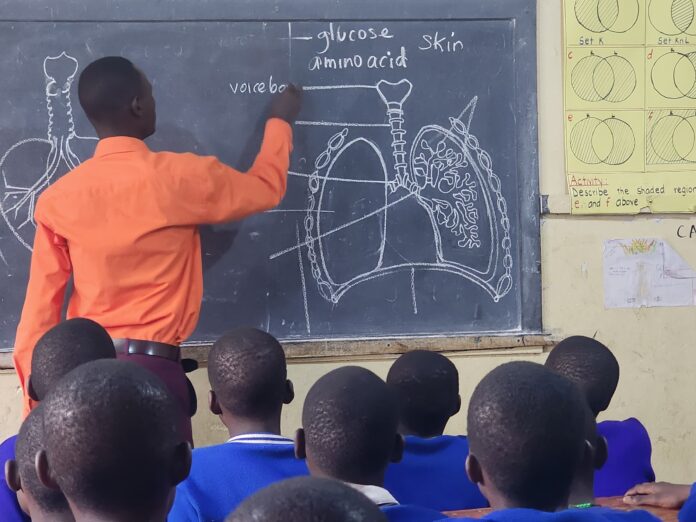 glucose
amino acid
skin
voicebo
Set K
Set KnL
c
d
e
f
Activity:
Describe the shaded region
e and f above
CA